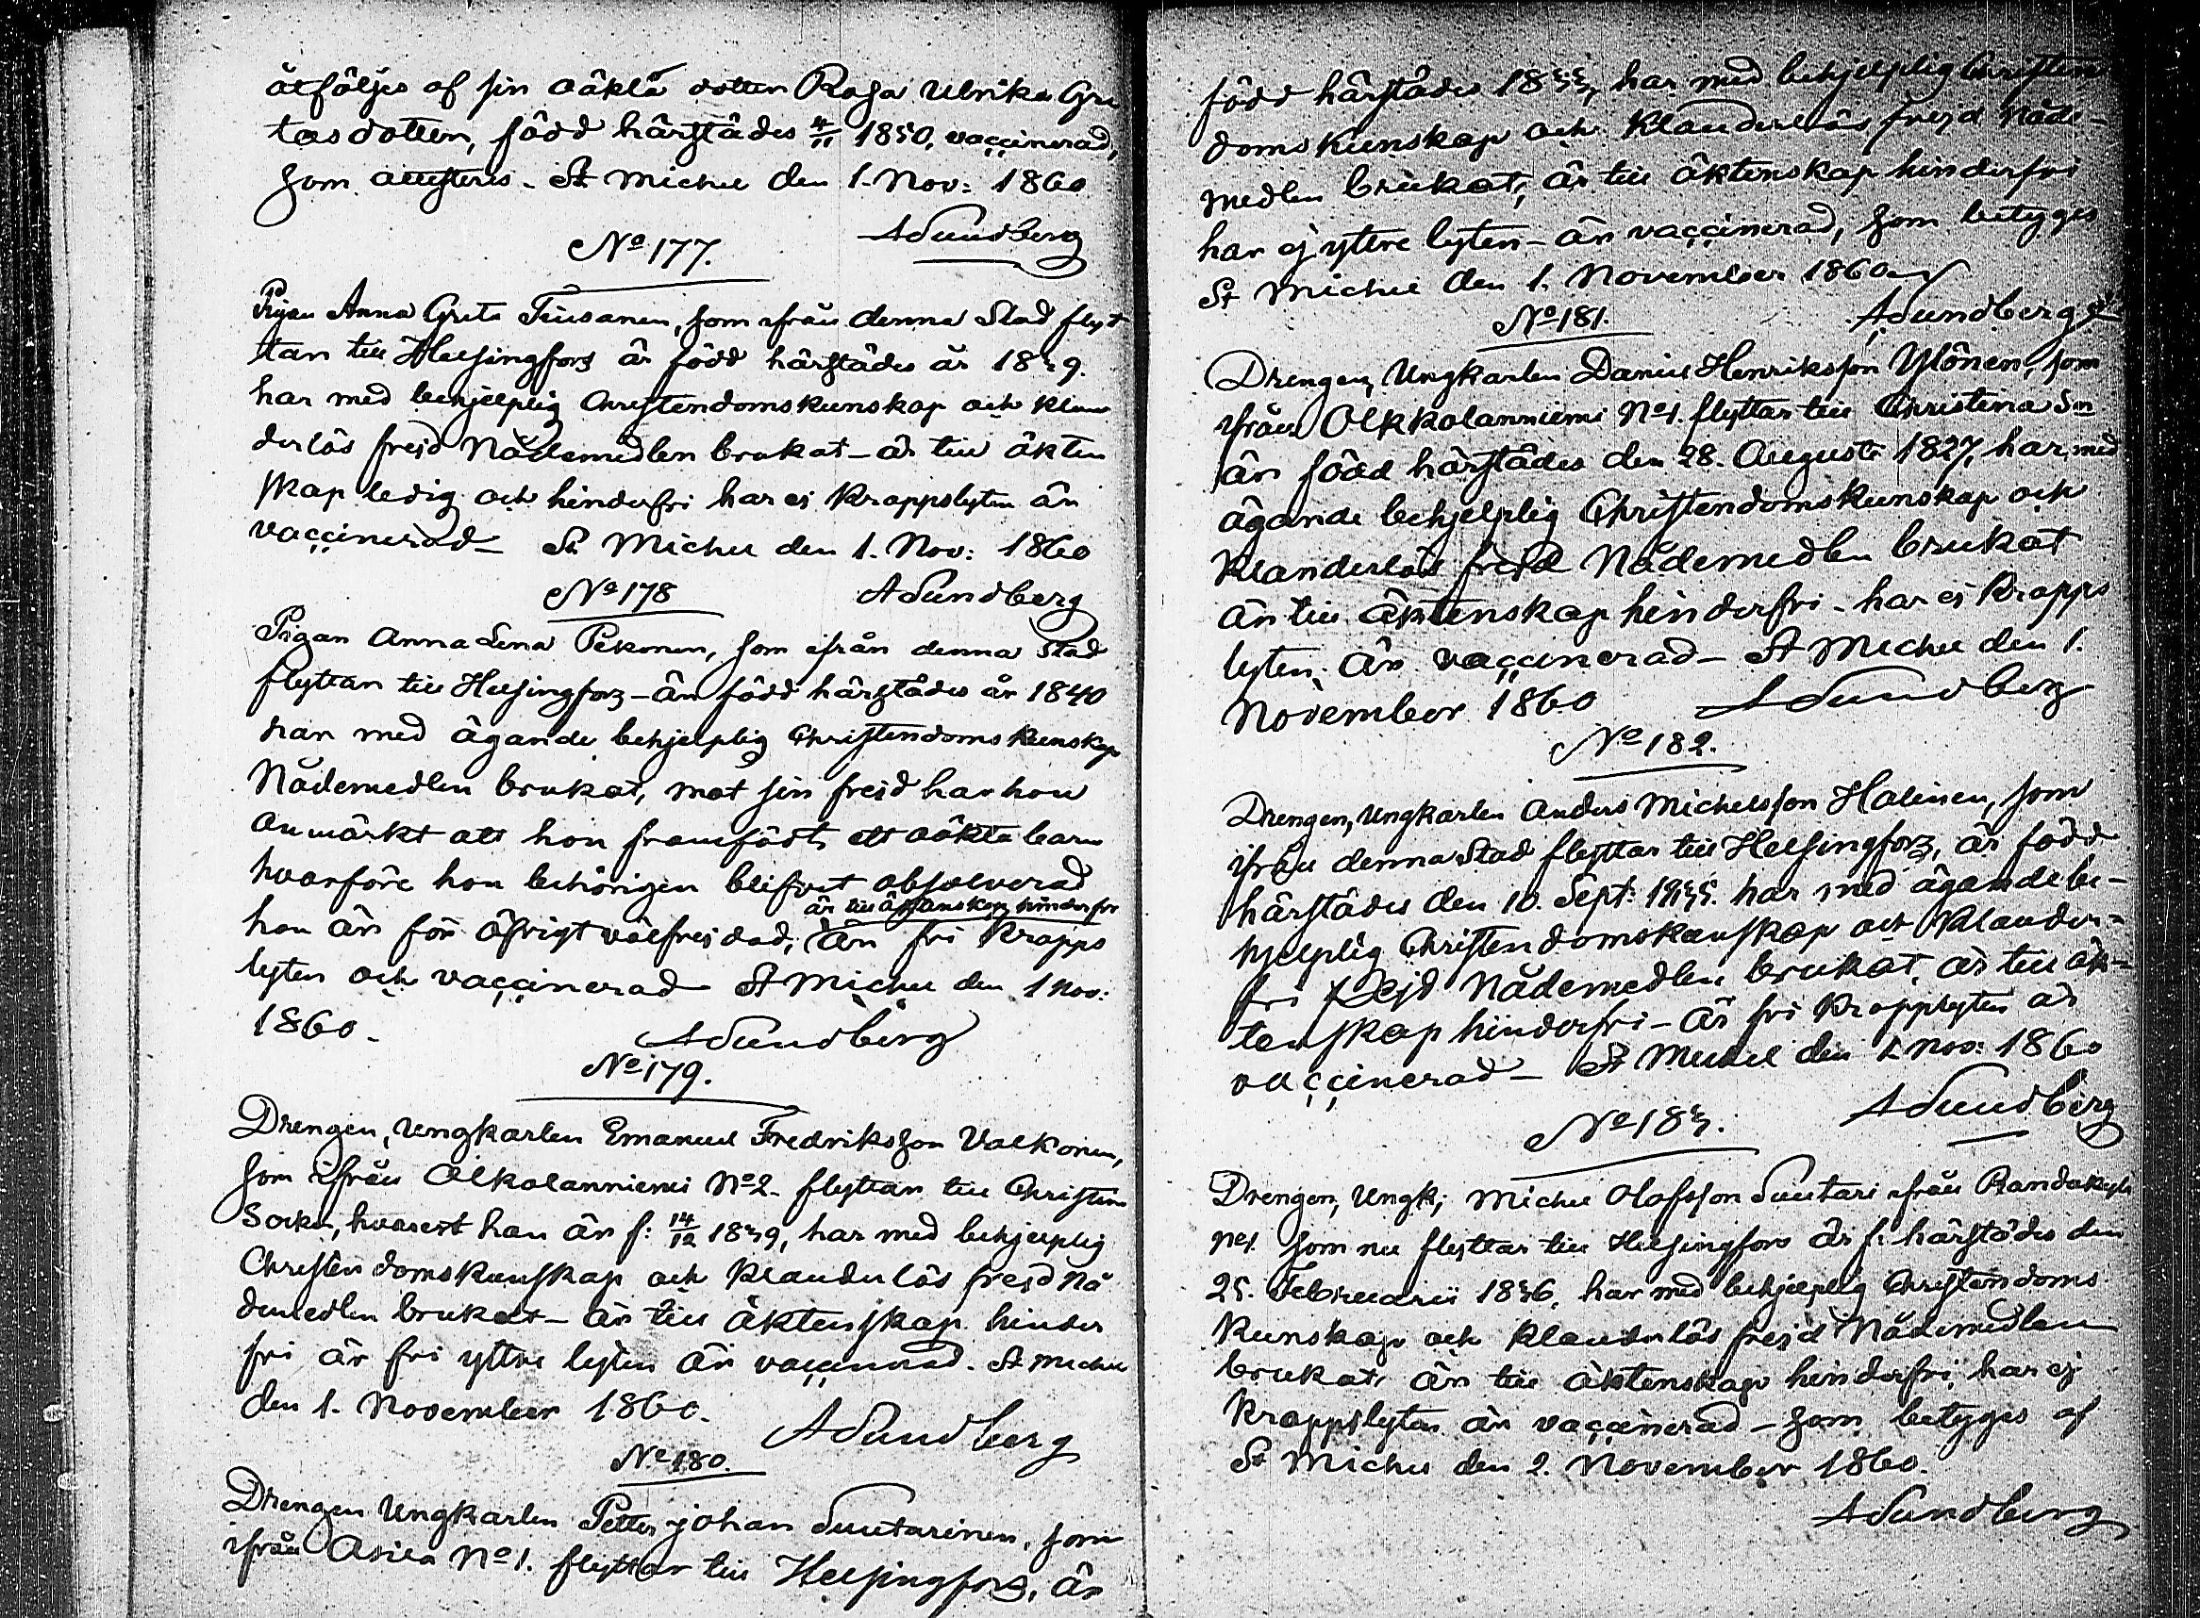 åtföljes af sin oäkta dotter Rosa Ulrika Gre
tasdotter, född härstädes 4/11 1850, vaccinerad,
som attesteras. St Michel den 1. Nov: 1860
ASundberg
No 177.
Pigan Anna Greta Tiusanen, som ifrån denna Stad flyt
tar till Helsingfors är född härstädes år 1839.
har med behjelplig Christendomskunskap och klan
derlös frejd Nådemedlen brukat – är till äkten
skap ledig och hinderfri har ej kroppslyten är
vaccinerad – St Michel den 1. Nov: 1860
No 178 ASundberg
Pigan Anna Lena Pekonen, som ifrån denna Stad
flyttar till Helsingfors – är född härstädes år 1840
har med ägande behjelplig Christendomskunskap
Nådemedlen brukat, mot sin frejd har hon
anmärkt att hon framfödt ett oäkta barn
hvarföre hon behörigen blifvit absolverad
är till äktenskap hinderfri
hon är för öfrigt välfrejdad, är fri kropps
lyten och vaccinerad St Michel den 1 Nov:
1860. ASundberg
No 179.
Drengen, Ungkarlen Emanuel Fredriksson Valkonen,
som ifrån Olkolanniemi No 2. flyttar till Christina
Socken, hvarest han är f: 14/12 1839, har med behjelplig
Christendomskunskap och klanderlös frejd Nå
demedlen brukat – är till äktenskap hinder
fri är fri yttre lyten är vaccinerad. St Michel
den 1. November 1860.
ASundberg
No 180.
Drengen Ungkarlen Petter Johan Suutarinen, som
ifrån Asila No 1. flyttar till Helsingfors, är
född härstädes 1833, har med behjelplig Christen
domskunskap och klanderlös frejd Nåde-
medlen brukat, är till äktenskap hinderfri
har ej yttre lyten – är vaccinerad, som betyges
St Michel den 1. November 1860
No 181. ASundberg
Drengen, Ungkarlen Daniel Henriksson Ylönen, som
ifrån Olkkolanniemi No 1. flyttar till Christina Sn
är född härstädes den 28. Augusti 1827, har med
ägande behjelplig Christendomskunskap och
klanderlös frejd Nådemedlen brukat
är till äktenskap hinderfri – har ej kropps
lyten. är vaccinerad – St Michel den 1.
November 1860 ASundberg
No 182.
Drengen, Ungkarlen Anders Michelsson Halinen, som
ifrån denna Stad flyttar till Helsingfors, är född
härstädes den 10. Sept: 1835. har med ägande be-
hjelplig Christendomskunskap och klander-
fri frejd Nådemedlen brukat, är till äk-
tenskap hinderfri – är fri kroppslyten är
vaccinerad – St Michel den 1. Nov: 1860
No 183. ASundberg
Drengen, Ungk; Michel Olofsson Suutari ifrån Randakylä
No 1. som nu flyttar till Helsingfors är f: härstädes den
25. Februarii 1836, har med behjelplig Christendoms
kunskap och klanderlös frejd Nådemedlen
brukat, är till äktenskap hinderfri, har ej
kroppslyten är vaccinerad – som betyges af
St Michel den 2. November 1860.
ASundberg